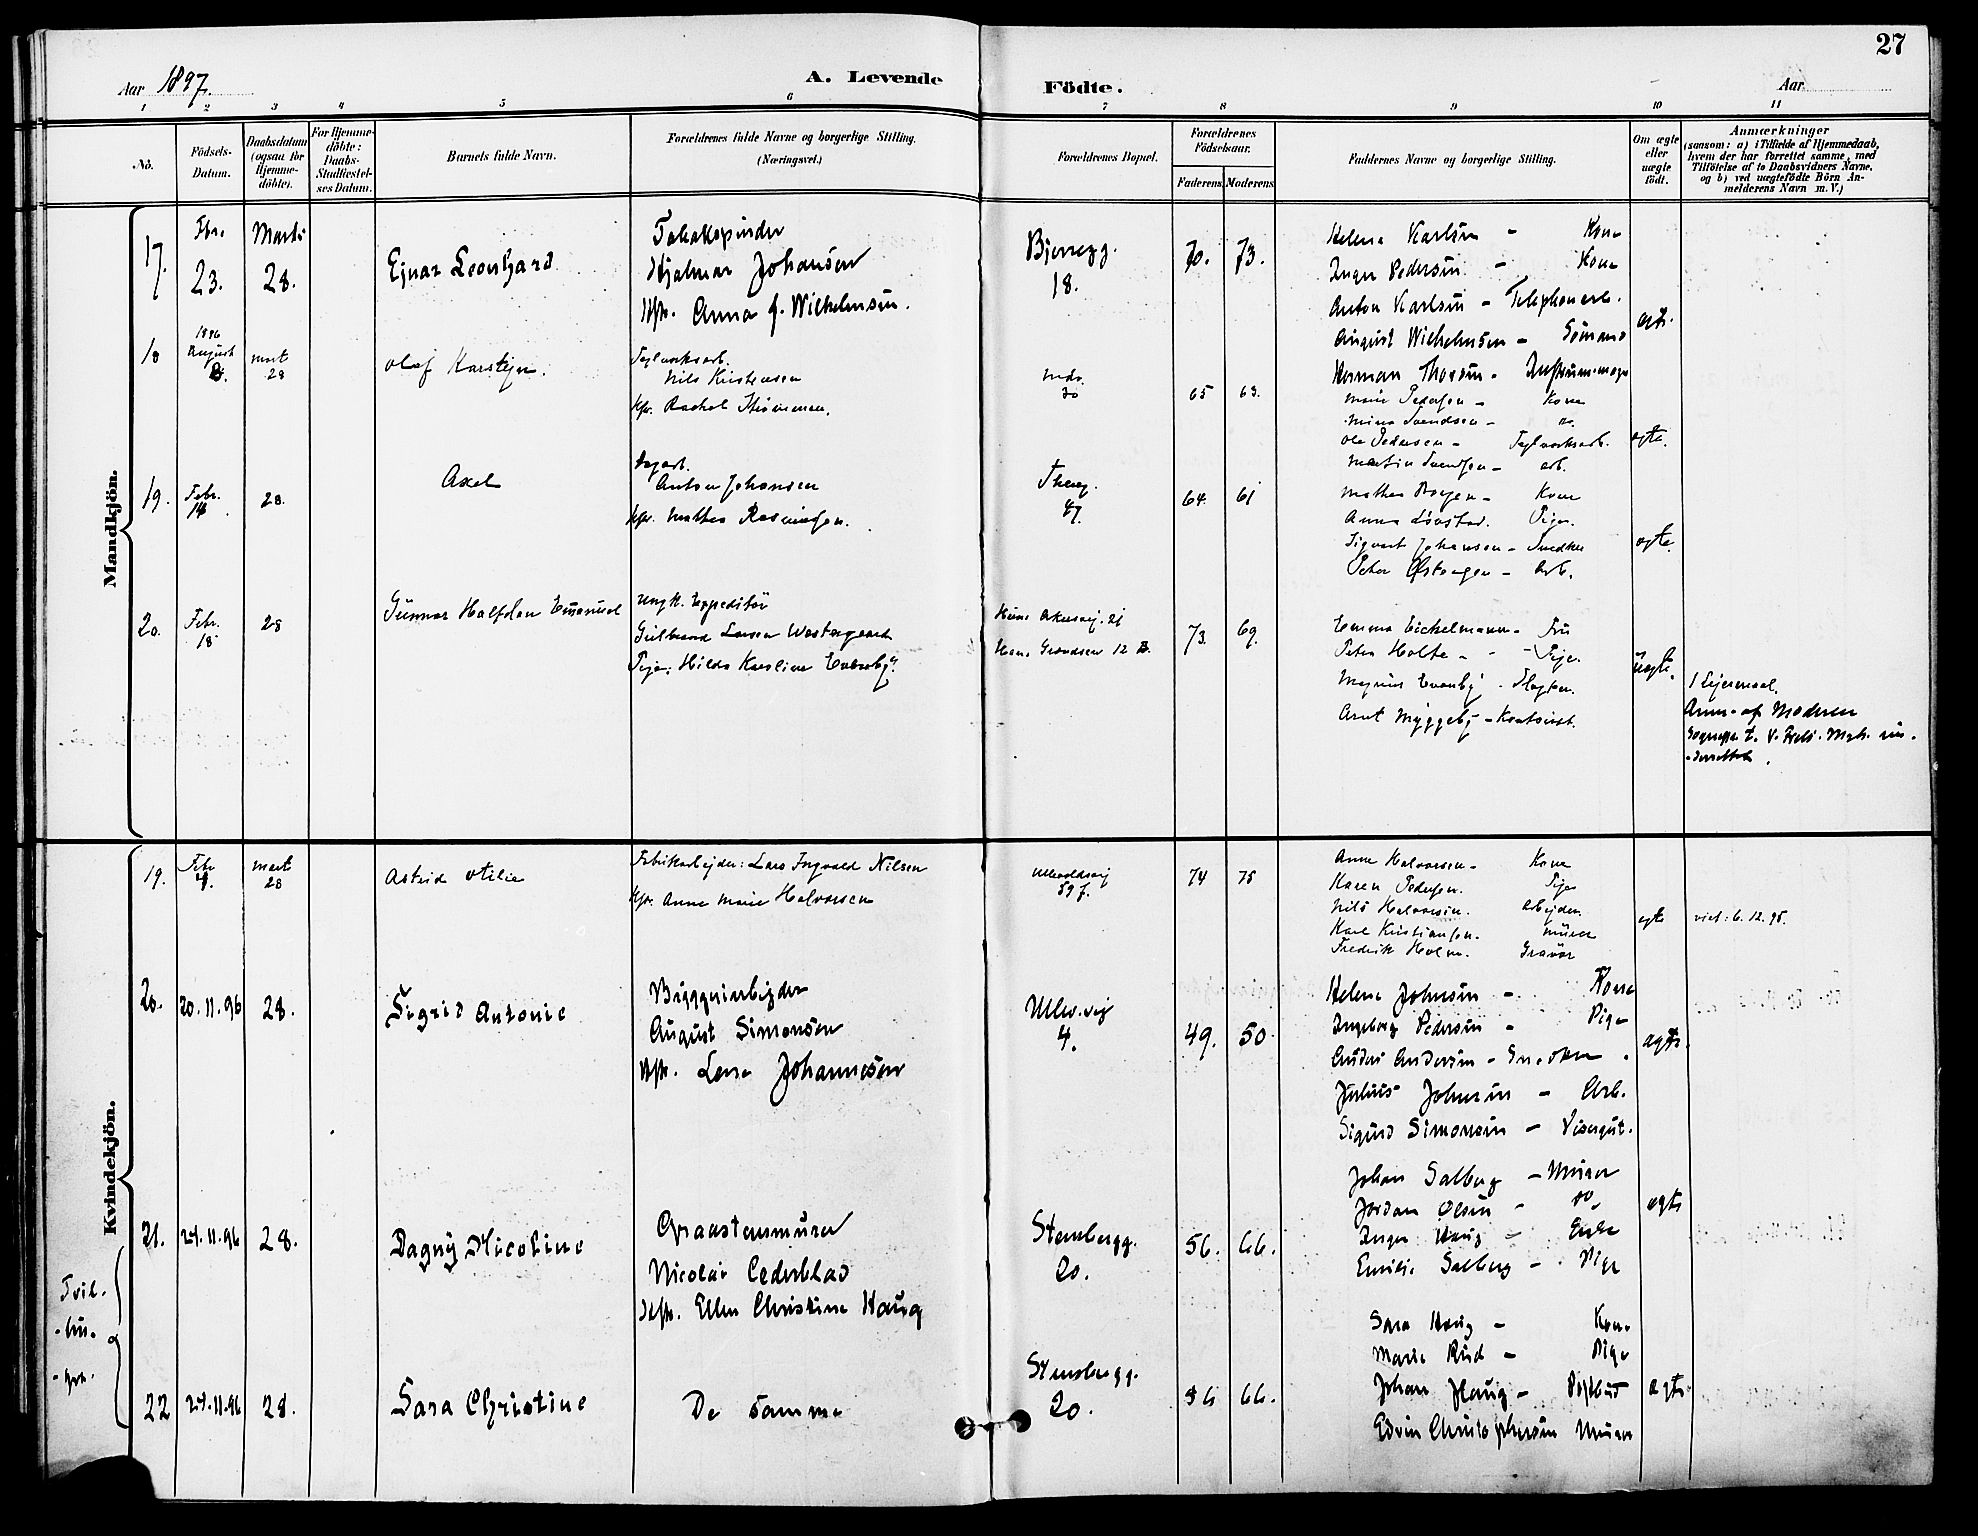 27
Aar 1897.
A. Levende
Födte.
Aar
1 2 3 4 5 6 7 8 9 10 11
No.
Födsels-Datum.
Daabsdatum (ogsaa for Hjemme-döbte).
For Hjemme-döbte: Daabs-Stadfæstel-ses Datum.
Barnets fulde Navn.
Forældrenes fulde Navne og borgerlige Stilling.
(Næringsvei.)
Forældrenes Bopæl.
Forældrenes Födselsaar.
Faderens. Moderens.
Faddernes Navne og borgerlige Stilling.
Om ægte eller uægte födt.
Anmærkninger
(saasom: a) i Tilfælde af Hjemmedaab,
hvem der har forrettet samme, med
Tilföielse af to Daabsvidners Navne,
og b) ved uægtefödte Börn An-
melderens Navn m. V.)
Mandkjön.
17. 23. Marts 28.
Ejnar Leonhard
Hjalmar Johansen
Anna J. Wilhelmsen.
18.
70. 73.
Helene Karlsen - Kone
Inger Pedersen - Kone
Anton Karlsen - Telephonarb.
August Wilhelmsen - Sömand
Herman Thorsen -
ægte.
18 1896 August Mart 28
Olaf Karstejn.
Teglverksarb.
Nils Kristensen
65 63.
Marie Pedersen - Kone
Mina Svendsen - do.
Ole Pedersen - Teglverksarb.
Martin Svendsen - arb.
ægte.
19. Febr. 14. 28.
Axel
Dagarb.
Anton Johansen
64 61
Mathea Borgen - Kone
Anna Lövstad. Pige.
Sigvart Johansen - Snedker
Peter Østengen - Arb.
ægte.
20. Febr. 18 28
Gunnar Halfdan Emanuel
Ungk. Expeditör
Gulbrand Larsen Westergaard
Pige. Hilda Karoline Evensby.
73. 69.
Emma Eickelmann - Fru
Petra Holte - Pige.
Arnt Myggeby - Kontorist.
uægte.
1 Lejermaal.
Anm. af Moderen
Kvindekjön.
19. Febr. 4. Mart 28
Astrid Otilie
Fabrikarbejder: Lars Ingvald Nilsen
Kfr. Anne Marie Halvorsen
Ullevoldsvej
59 f.
74 75
Anne Halvorsen - Kone
Karen Pedersen. Pige
Nils Halvorsen. Arbejder.
Karl Kristiansen. Murer
Fredrik Holm. Gravör
ægte
viet: 6.12.95.
20. 20.11.96 28.
Sigrid Antonie
Bryggeriarbejder
August Simonsen
Hfr. Lena Johannesen
Ullev.vej
4.
49. 50
Helene Johnsen - Kone
Ingeborg Pedersen - Pige
Anders Andersen - Snedker.
Julius Johnsen - Arb.
Sigurd Simonsen - Visergut.
ægte.
Tvil-
-lin-
-ger.
21. 27.11.96 28.
Dagny Nicoline
Graastensmurer
Nicolai Cederblad
Hfr. Ellen Christine Haug
Stensbergg.
20.
56. 66.
Johan Salberg - Murer
Jordan Olsen - do.
Inger Haug - Enke
Emilie Salberg - Pige
ægte
22 27.11.96 28.
Sara Christine
De samme
Stensbergg.
20.
56 66.
Sara Haug - Kone
Marie Rud - Pige
Johan Haug - Postbud
Edvin Christophersen Murer
ægte